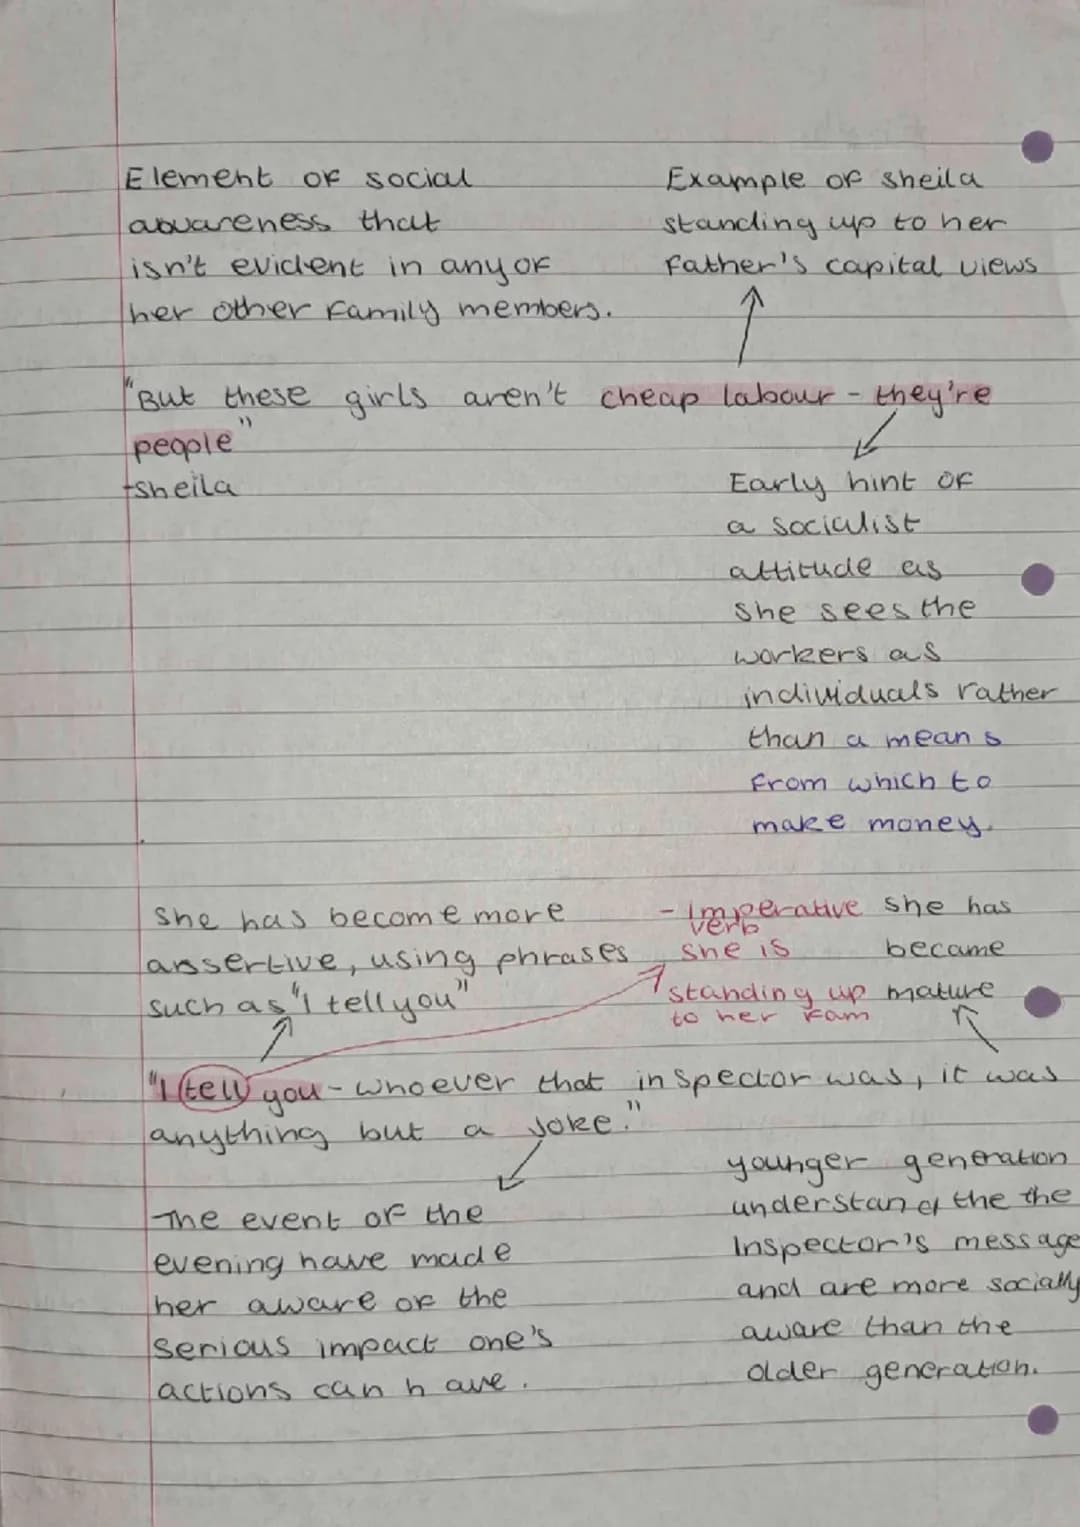 Element of social
awareness that
isn't evident in any of
her other family members.
Example of sheila
standing up to her
father's capital views
"But these girls aren't cheap labour - they're
people"
-sheila
Early hint of
a socialist
attitude as
she sees the
workers as
individuals rather
than a means
from which to
make money.
she has become more
assertive, using phrases
such as "I tell you"
- Imperative
verb
she is
standing up
to her fam
she has
became
mature
"I tell you - whoever that inspector was, it was
anything but a joke."
The event of the
evening have made
her aware of the
serious impact one's
actions can have.
younger generation
understand the the
Inspector's message
and are more socially
aware than the
older generation.